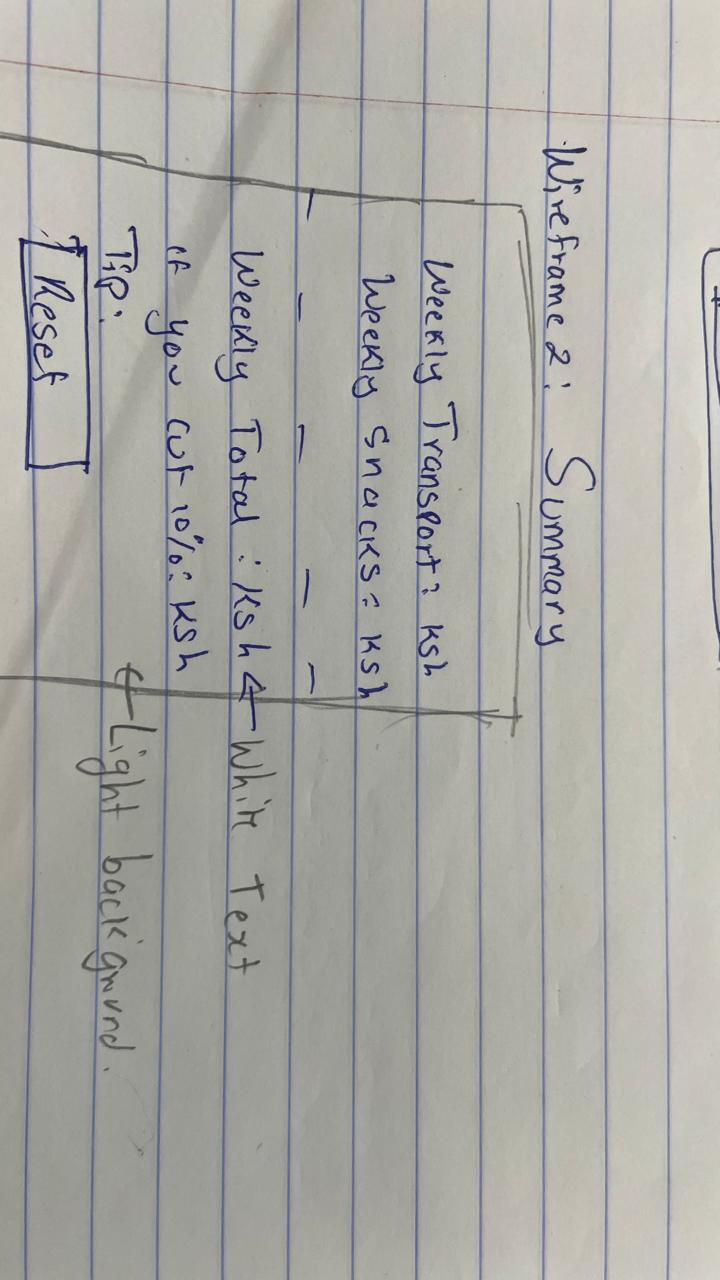 Wireframe 2: Summary
Weekly Transport: Ksh
Weekly Snacks: Ksh
Weekly Total: Ksh ← White Text
if you cut 10%: Ksh
Tip: ← Light background.
↑ Reset